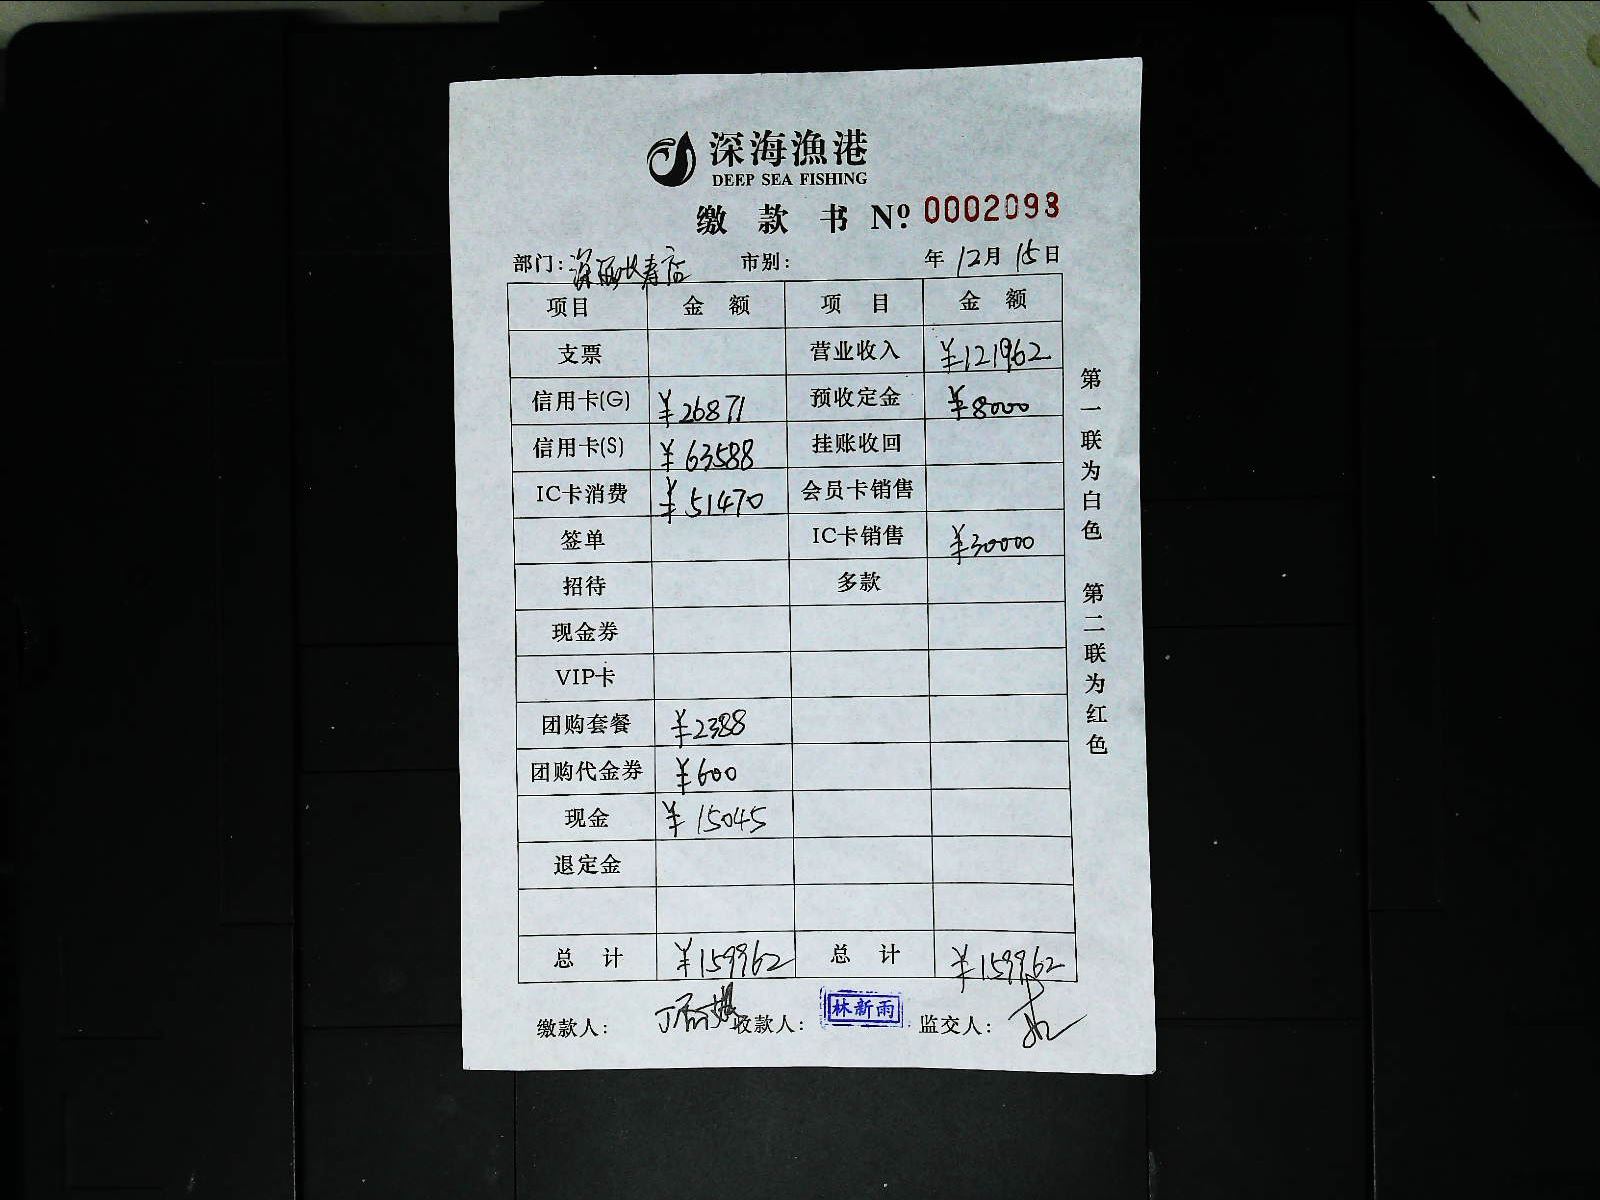 深海漁港
DEEP SEA FISHING
缴 款 书 Nº. 0002093
部门: 市别: 年 12月 15日
项目 金 额 项 目 金 额
支票 营业收入 ¥121962
信用卡(G) ¥26871 预收定金 ¥8000
信用卡(S) ¥63588 挂账收回
IC卡消费 ¥51470 会员卡销售
签单 IC卡销售 ¥30000
招待 多款
现金券
VIP卡
团购套餐 ¥2388
团购代金券 ¥600
现金 ¥15045
退定金
总 计 ¥159962 总 计 ¥159962
缴款人: 收款人: 林新雨 监交人:
第一联为白色 第二联为红色